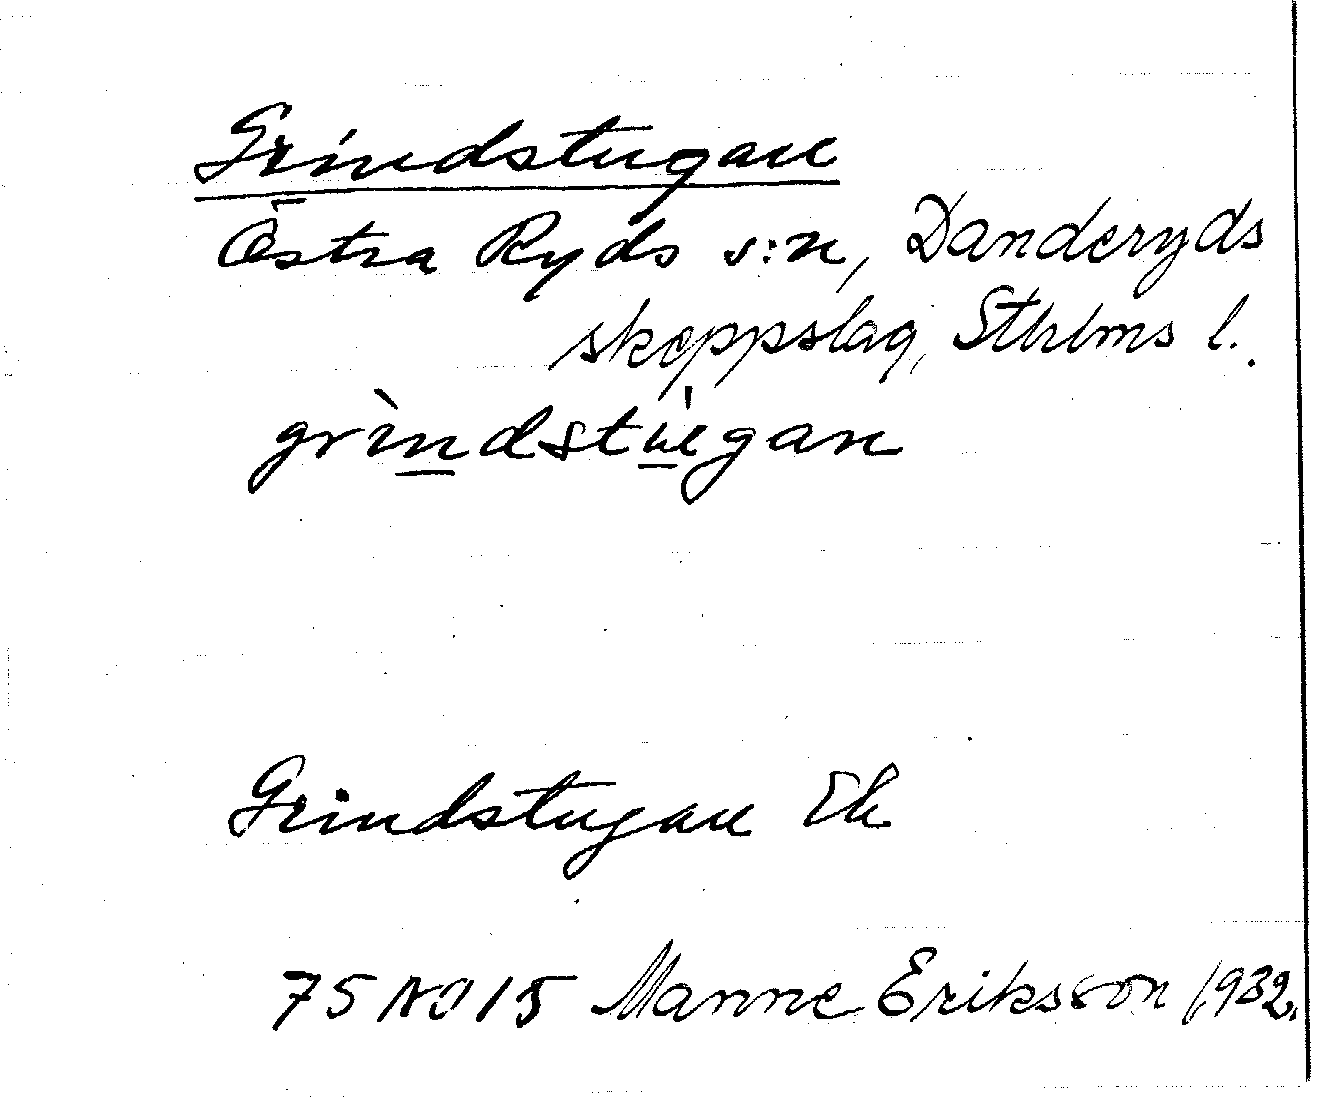 Grindstugan
Östra Ryds s:n, Danderyds
skeppslag, Sthlms l.
grìndstùgan
Grindstugan Ek
75 NO 15 Manne Eriksson 1932.